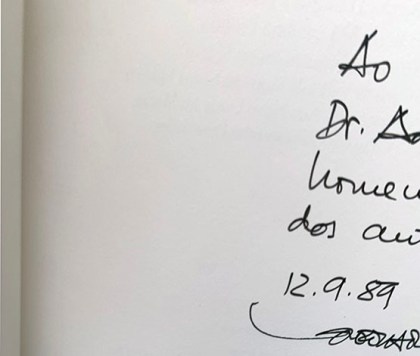 Ao
Dr.
homen
dos au
12.9.89